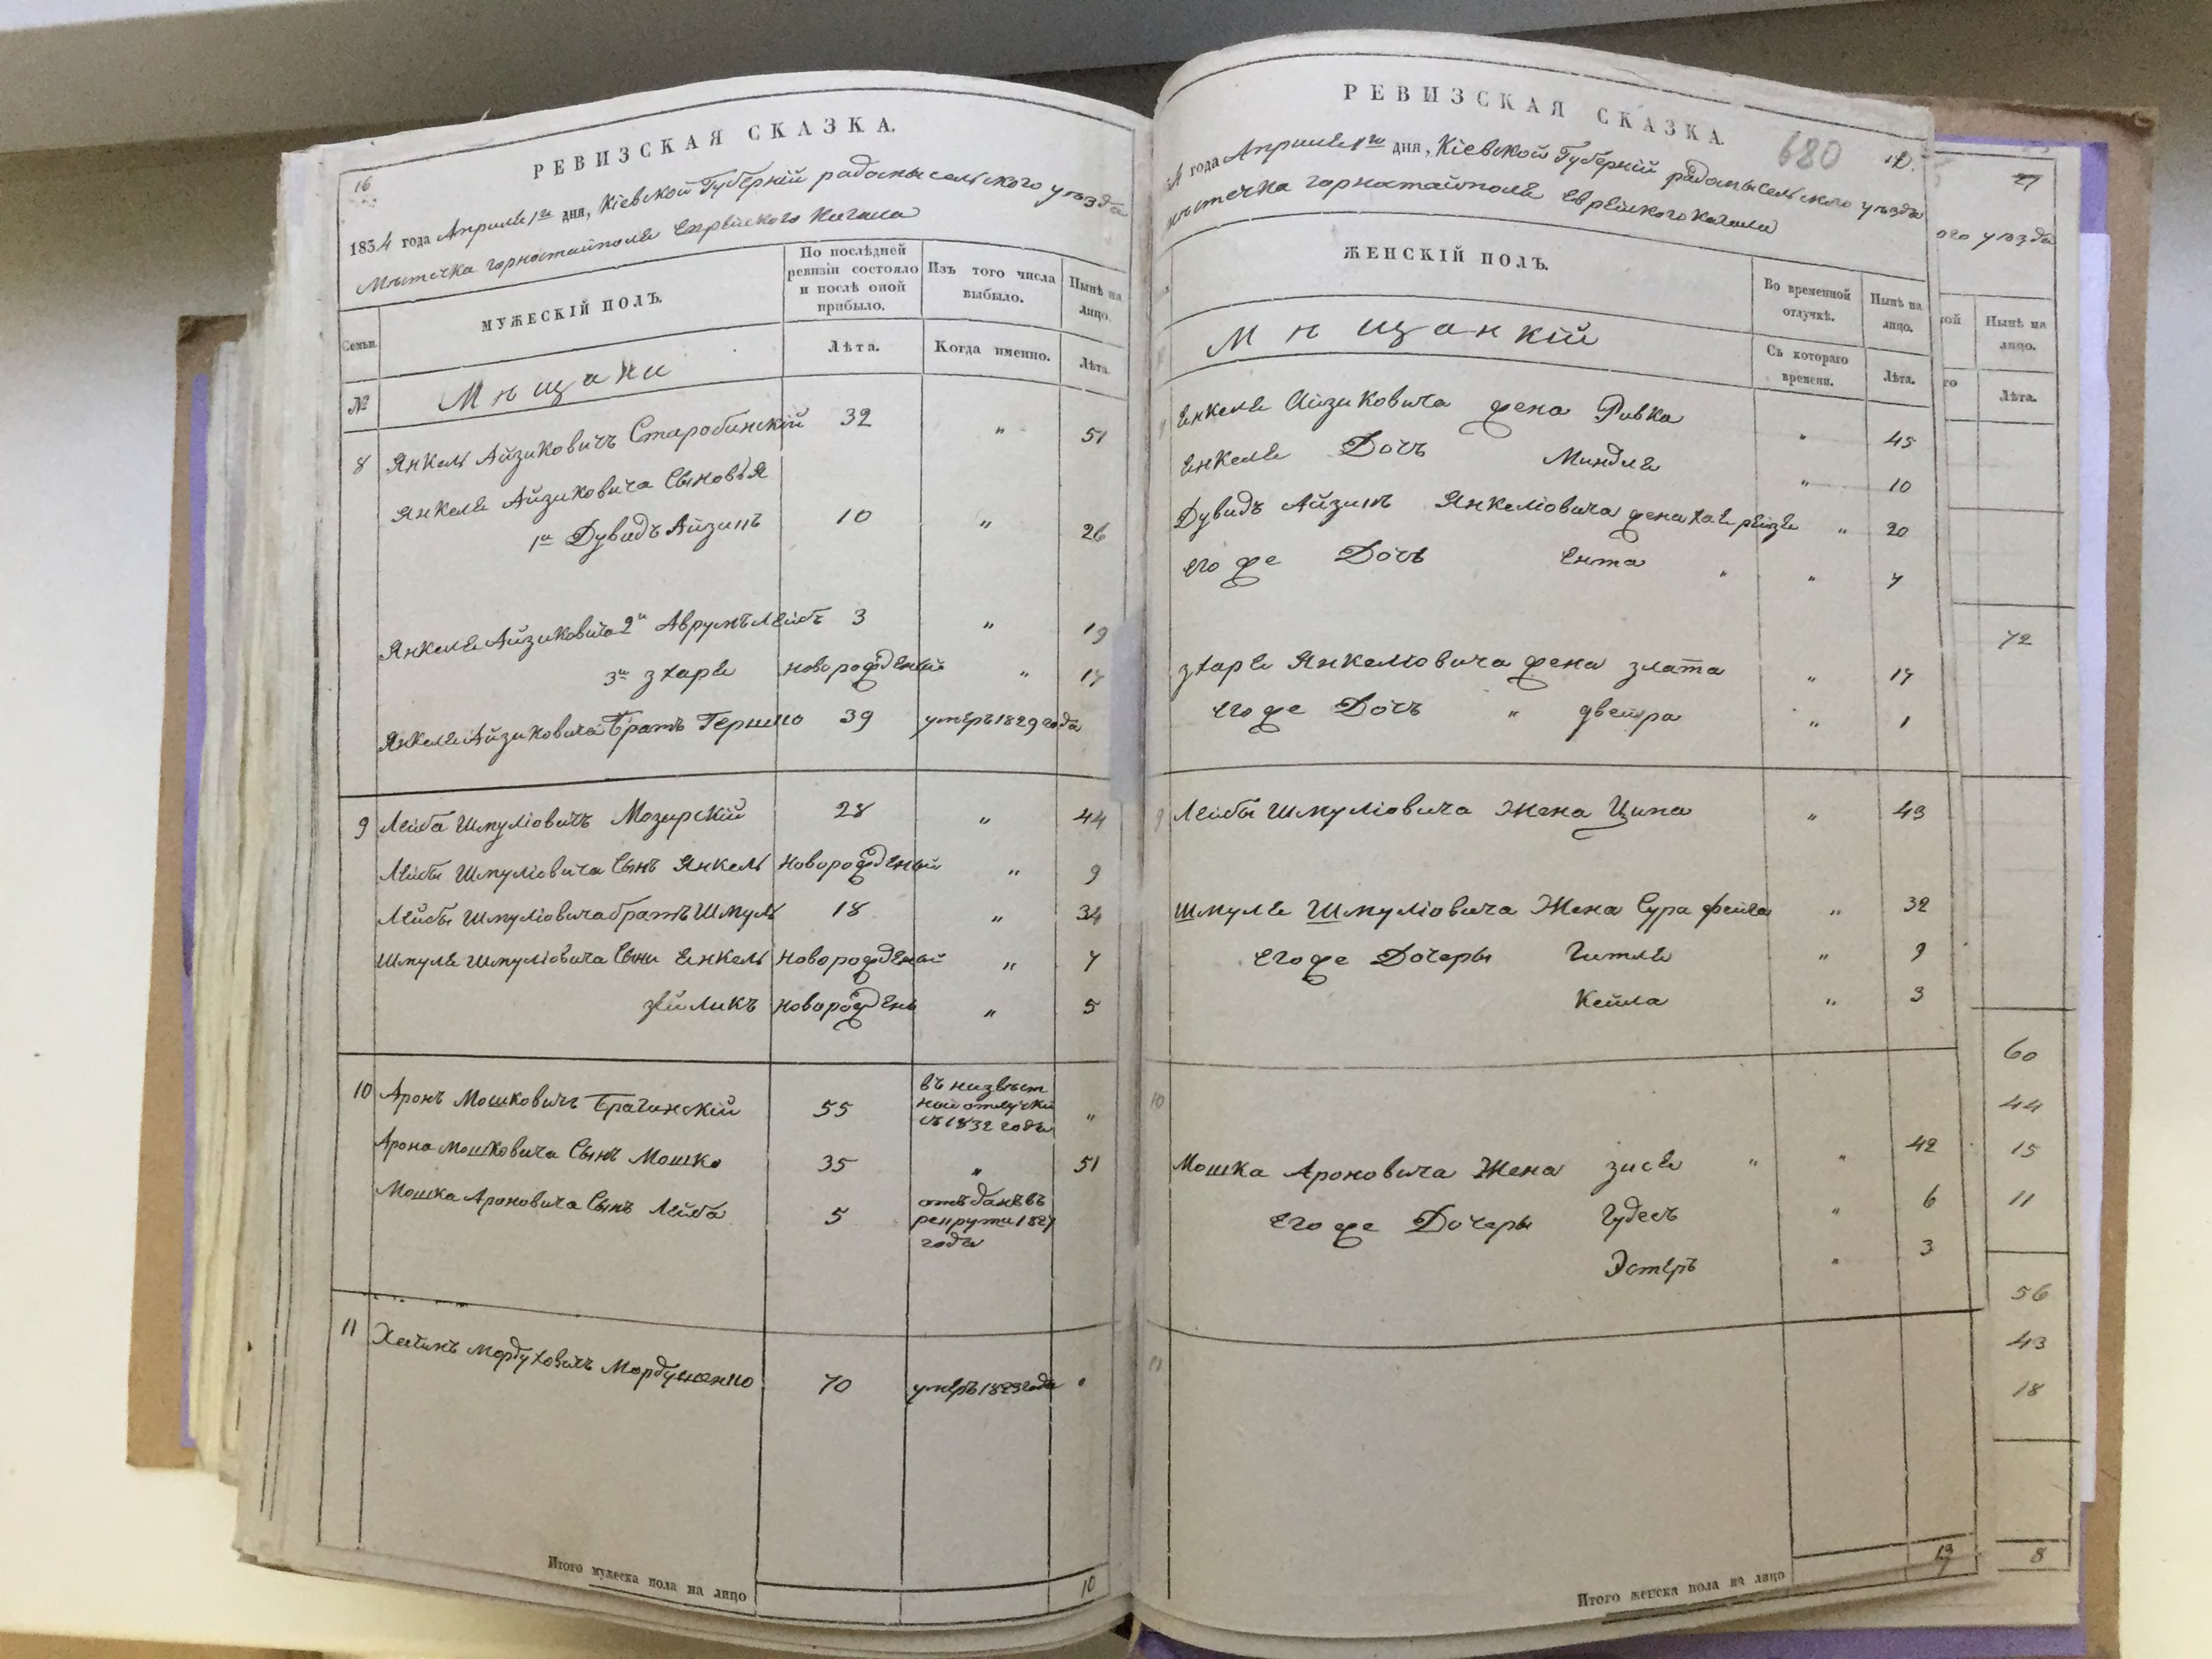 16
РЕВИЗСКАЯ СКАЗКА.
1834 года Апреля 1го дня, Кіевской Губерній радомысельского уѣзда
Мѣстечка горностайполя Еврейского Кагала
Семьи.
МУЖЕСКІЙ ПОЛЪ.
По послѣдней ревизіи состояло и послѣ оной прибыло.
Изъ того числа выбыло.
Нынѣ на лицо.
№
Мѣщани
Лѣта.
Когда именно.
Лѣта.
8 Янкель Айзиковичъ Старобинскій 32 " 51
Янкеля Айзиковича Сыновья
1й Дувидъ Айзикъ 10 " 26
Янкеля Айзиковича 2й Аврумъ Лейбъ 3 " 19
3й зхаря новорожденый " 17
Янкеля Айзиковича Братъ Гершко 39 умеръ 1829 года
9 Лейба Шмуліовичъ Мозирскій 28 " 44
Лейбы Шмуліовича Сынъ Янкель новорожденый " 9
Лейбы Шмуліовича братъ Шмуль 18 " 34
Шмуля Шмуліовича Сыни Енкель новорожденый " 7
зейликъ новорожденъ " 5
10 Аронъ Мошковичъ Брагинскій 55 въ низвѣст
ной отлучки
съ 1832 года "
Арона Мошковича Сынъ Мошко 35 " 51
Мошка Ароновича Сынъ Лейба 5 отъданъ въ
рекрути 1827
года
11 Хаимъ Мордуховичъ 70 умеръ 1823 года "
Итого мужеска пола на лицо 10
РЕВИЗСКАЯ СКАЗКА.
680 12.
года Апреля 1го дня, Кіевской Губерній радомысельского уѣзда
мѣстечка горностайполя Еврейского Кагала
ЖЕНСКІЙ ПОЛЪ.
Во временной отлучкѣ.
Нынѣ на лицо.
Мѣщанкій
Съ котораго времени.
Лѣта.
Енкеля Айзиковича жена Ривка " 45
Енкеля Дочъ Миндля " 10
Дувидъ Айзикъ Янкеліовича жена Хая рейзя " 20
его же Дочъ Ента " " 7
зхаря Янкеліовича жена злата " 17
его же Дочъ " двейра " 1
9 Лейбы Шмуліовича Жена Ципа " 43
Шмуля Шмуліовича Жена Сура фейга " 32
его же Дочеры Гитля " 9
Кейла " 3
10
Мошка Ароновича Жена зися " " 42
его же Дочеры Гудесъ " 6
Эстеръ " 3
11
Итого женска пола на лицо 13
27
ого уѣзда
Нынѣ на лицо.
Лѣта.
72
60
44
15
11
56
43
18
8